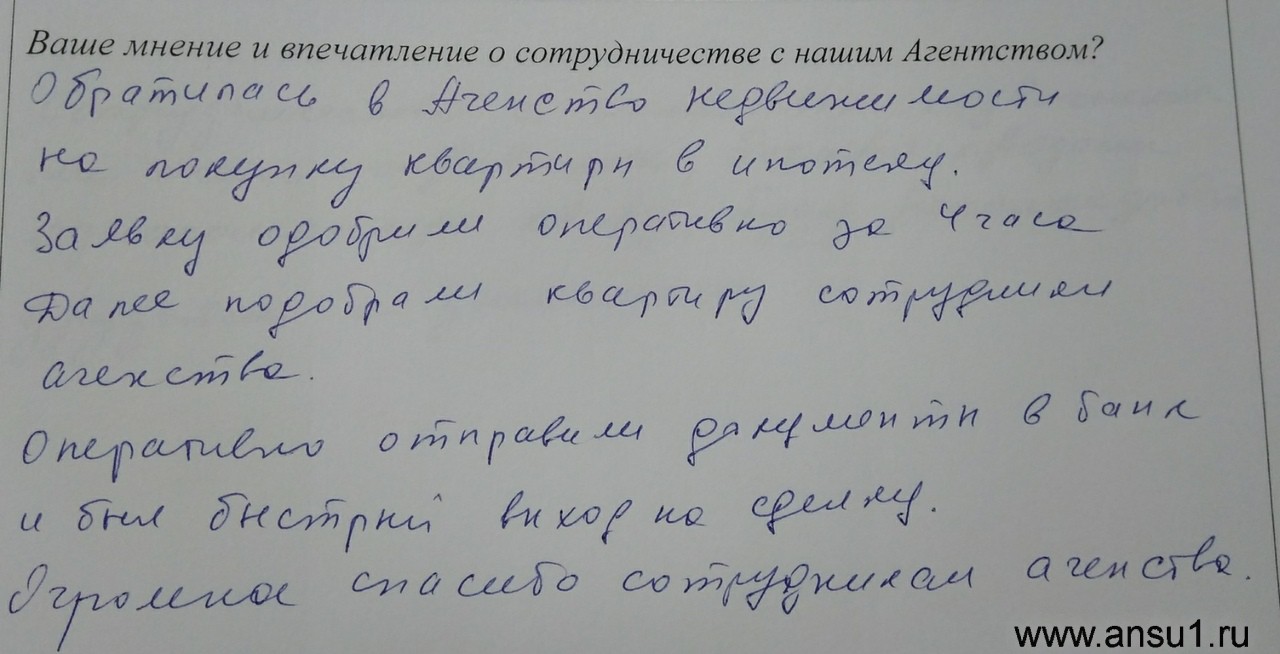 Ваше мнение и впечатление о сотрудничестве с нашим Агентством?
Обратилась в Агенство недвижимости
на покупку квартиры в ипотеку.
Заявку одобрили оперативно за 4 часа
Далее подобрали квартиру сотрудники
агенства.
Оперативно отправили документы в банк
и был быстрый выход на сделку.
Огромное спасибо сотрудникам агенства.
www.ansu1.ru